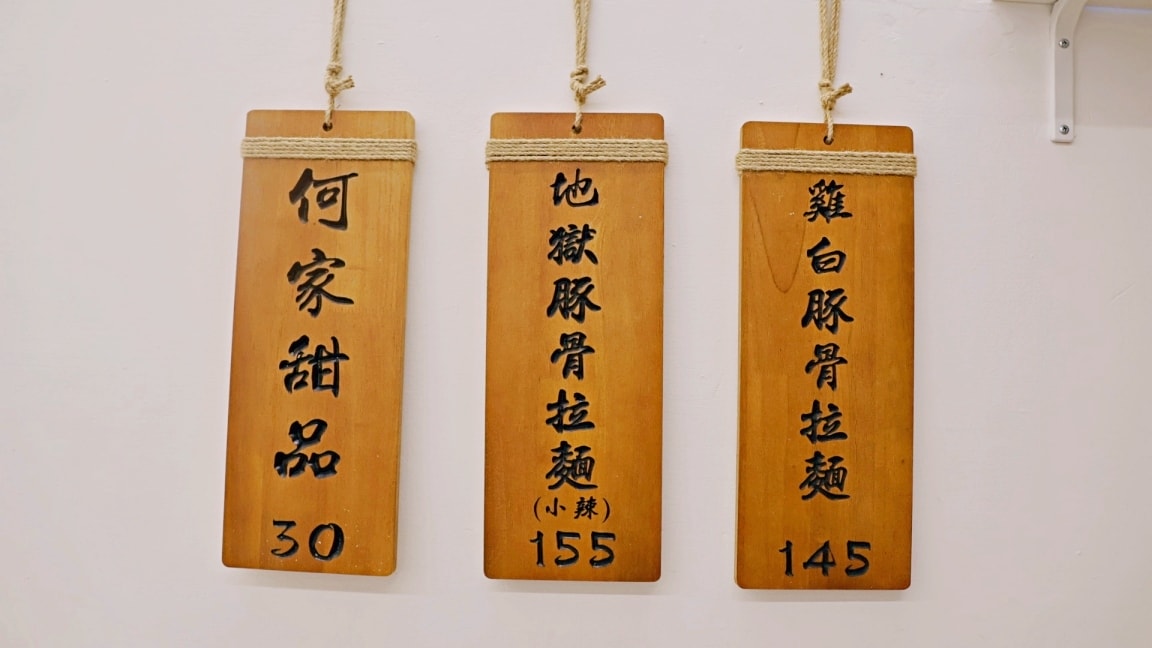 何家甜品
30
地獄豚骨拉麵
(小辣)
155
雞白豚骨拉麵
145